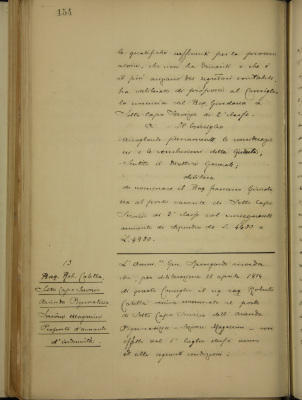 154
le qualifiche sufficienti per la promo
zione, che non ha demeriti e che è
il più anziano dei ragionieri contabili,
ha deliberato di proporre al Consiglio
la nomina del Rag. Giordana a
Sotto Capo Servizio di 2ª classe.
Il Consiglio
accogliendo pienamente le
ni e le conclusioni della Giunta;
Sentito il Direttore Generale;
delibera
di nominare il Rag. Francesco Giorda
na al posto vacante di Sotto Capo
Servizio di 2ª classe col conseguente
aumento di stipendio da L. 4400 a
L. 4900.
13
Rag. Rob. Calella,
Sotto Capo Servizio
Azienda
Sezione Magazzini
Proposta d'aumento
d'indennità.
L'Amm. Gen. ricorda
che, per deliberazione 22 aprile 1914
di questo Consiglio il sig. rag. Roberto
Calella venne nominato al posto
di Sotto Capo Servizio dell'Azienda
Sezione Magazzini - con
effetto dal 1° luglio stesso anno
ed alle seguenti condizioni: